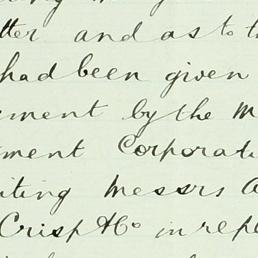 tter and as to t
had been given
ement by the M
tment Corporat
iting Messrs A
Crisp & Co in rep